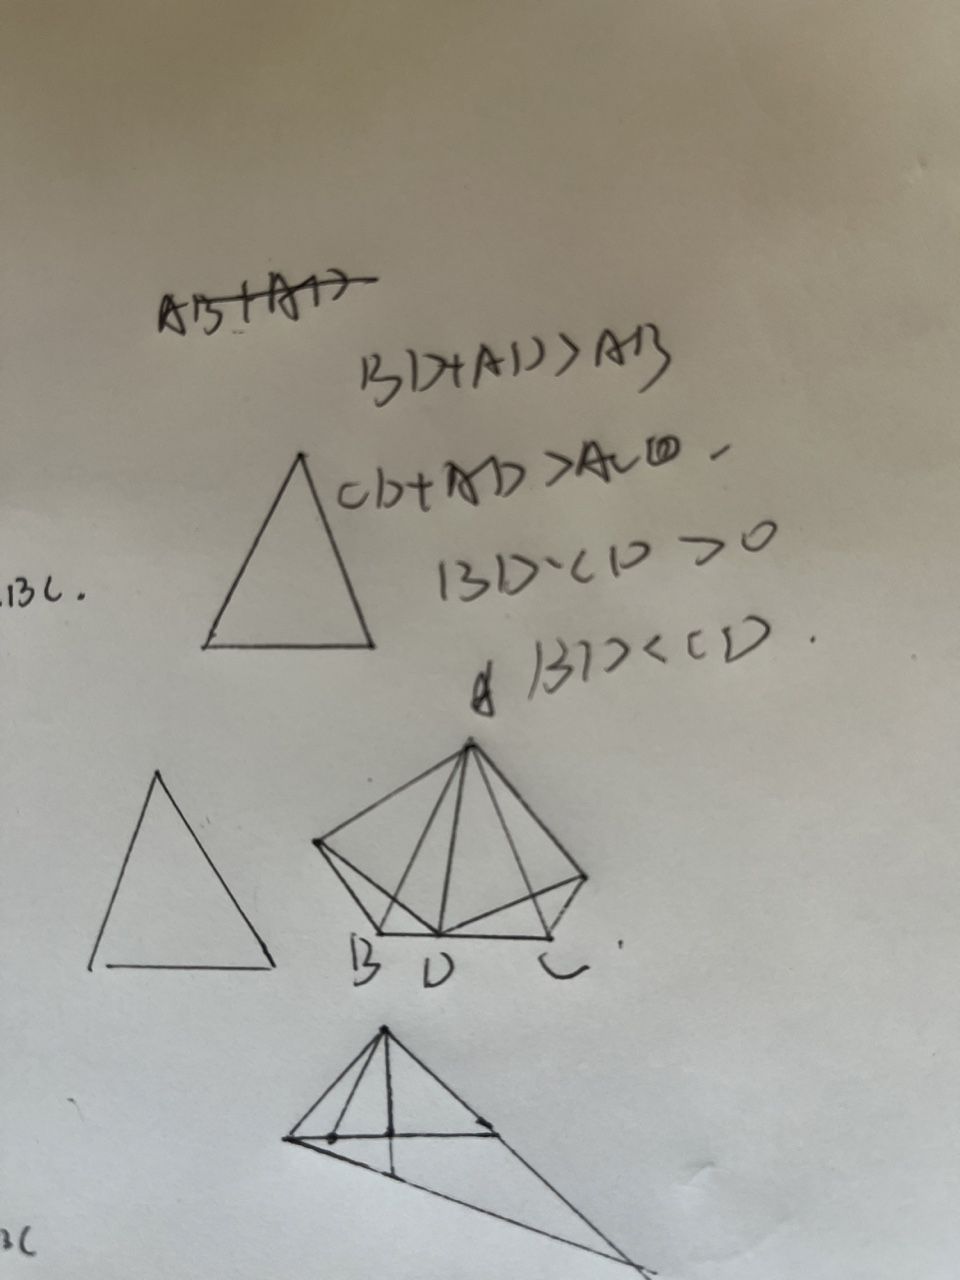 AB+AD
BD+AD>AB
CD+AD>AC②.
BD-CD>0
.BC.
BD<CD.
A
B D C
BC